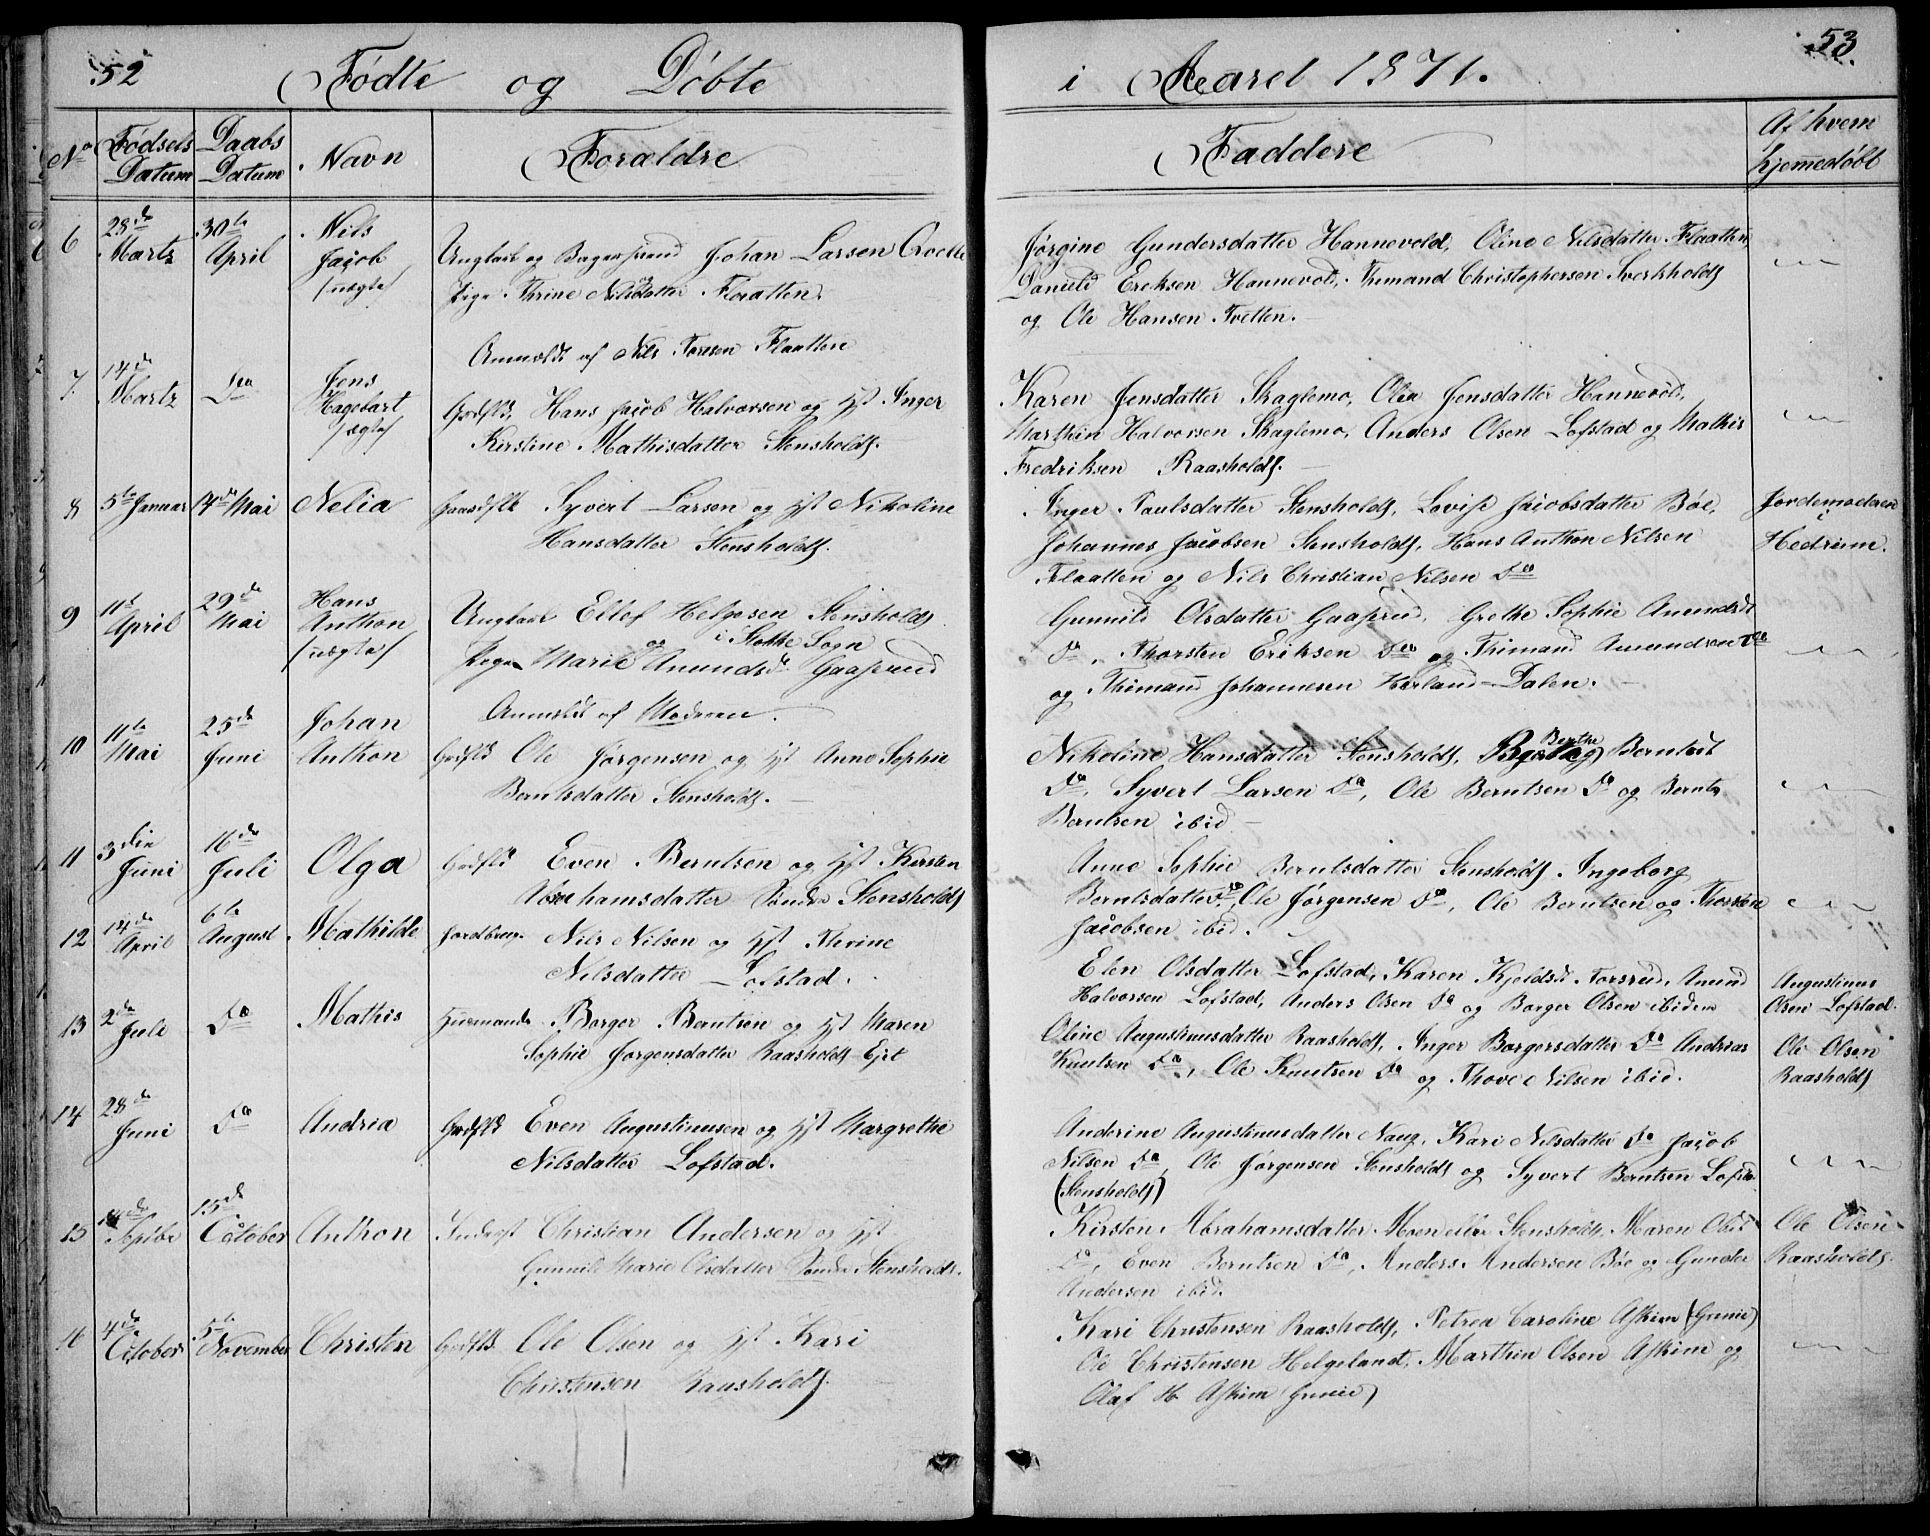 52
Fødte og Døbte
No Fødsels Datum Daabs Datum Navn Forældre
6 28de Martz 30te April Nils Jacob /uægte/ Ungkarl og Johan Larsen
Pige Thrine Nilsdatter Flaatten.
Anmeldt af Nils Flaatten
7. 14de Martz Do Jens Hagebart /ægte/ Grdflk. Hans Jacob Halvorsen og Hst Inger
Kirstine Mathisdatter Stensholdt.
8 5te Januar 14de Mai Nelia Gaardflk Syvert Larsen og Hst Nikoline
Hansdatter Stensholdt.
9 11te April 29de Mai Hans Anthon /uægte/ Ungkarl Ellef Helgesen Stensholdt
og i Stokke Sogn
Pige Marie Anundsd. Gaaserud
Anmeldt af Moderen.
10 11te Mai 25de Juni Johan Anthon Grdflk Ole Jørgensen og Hst Anne Sophie
Berntsdatter Stensholdt.
11 3die Juni 16de Juli Olga Grdflk Even Berntsen og Hst Kirsten
Abrahamsdatter Søndre Stensholdt
12 14de April 6te August Mathilde Jordbrug. Nils Nilsen og Hst Thrine
Nilsdatter Lofstad.
13 2de Juli Do Mathis Huusmands Borger Berntsen og Hst Maren
Sophie Jørgensdatter Raasholdt Ejet
14 28de Juni Do Andria Grdflk Even Augustinusen og Hst Margrethe
Nilsdatter Lofstad.
15 14de Septbr 15de October Anthon Inderst Christian Andersen og Hst
Gunnild Marie Olsdatter Søndre Stensholdt.
16 4de October 5te November Christen Grdflk Ole Olsen og Hst Kari
Christensen Raasholdt.
53.
i Aaret 1871.
Faddere Af hvem hjemedøbt
Jørgine Gundersdatter Hannevold, Oline Nilsdatter Flaatten
Daniel Ereksen Hannevold, Thimand Christophersen
og Ole Hansen Tvetten.
Karen Jensdatter Skaglemo, Olea Jensdatter Hannevold,
Marthin Halvorsen Skaglemo, Anders Olsen Lofstad og Mathis
Fredriksen Raasholdt.
Inger Paulsdatter Stensholdt, Lovise Jacobsdatter Bøe, Jordemoderen
Johannes Jacobsen Stensholdt, Hans Anthon Nilsen i Hedrum.
Flaatten og Nils Christian Nilsen Do
Gunnild Olsdatter Gaaserud, Grethe Sophie Anundsdt
Do, Thorsten Eriksen Do og Thimand Anundsen Do
og Thimand Johannesen Hørland-Dalen.
Nikoline Hansdatter Stensholdt, Berthe Berntsdt
Do, Syvert Larsen Do, Ole Berntsen Do og Bernt
Berntsen ibid
Anne Sophie Berntsdatter Stensholdt, Ingeborg
Berntsdatter Do, Ole Jørgensen Do, Ole Berntsen og Thorsten
Jacobsen ibid.
Elen Olsdatter Lofstad, Karen Kjeldsdt Torsrud, Anund Augustinus
Halvorsen Lofstad, Anders Olsen Do og Borger Olsen ibidem Olsen Lofstad.
Oline Augustinusdatter Raasholdt, Inger Borgersdatter Do Andrias Ole Olsen
Knutsen Do, Ole Knutsen Do og Thove Nilsen ibid. Raasholdt
Anderine Augustinusdatter Naug, Kari Nilsdatter Do Jacob
Nilsen Do, Ole Jørgensen Stensholdt og Syvert Berntsen Lofstad
(Stensholdt)
Kirsten Abrahamsdatter Moen eller Stensholdt, Maren Olsd Ole Olsen
Do, Even Berntsen Do, Anders Andersen Bøe og Gunder Raasholdt.
Andersen ibid.
Kari Christensen Raasholdt, Petrea Caroline Askim (Grunie)
Ole Christensen Helgeland, Marthin Olsen Askim og
Olaf H. Askim (Grunie)